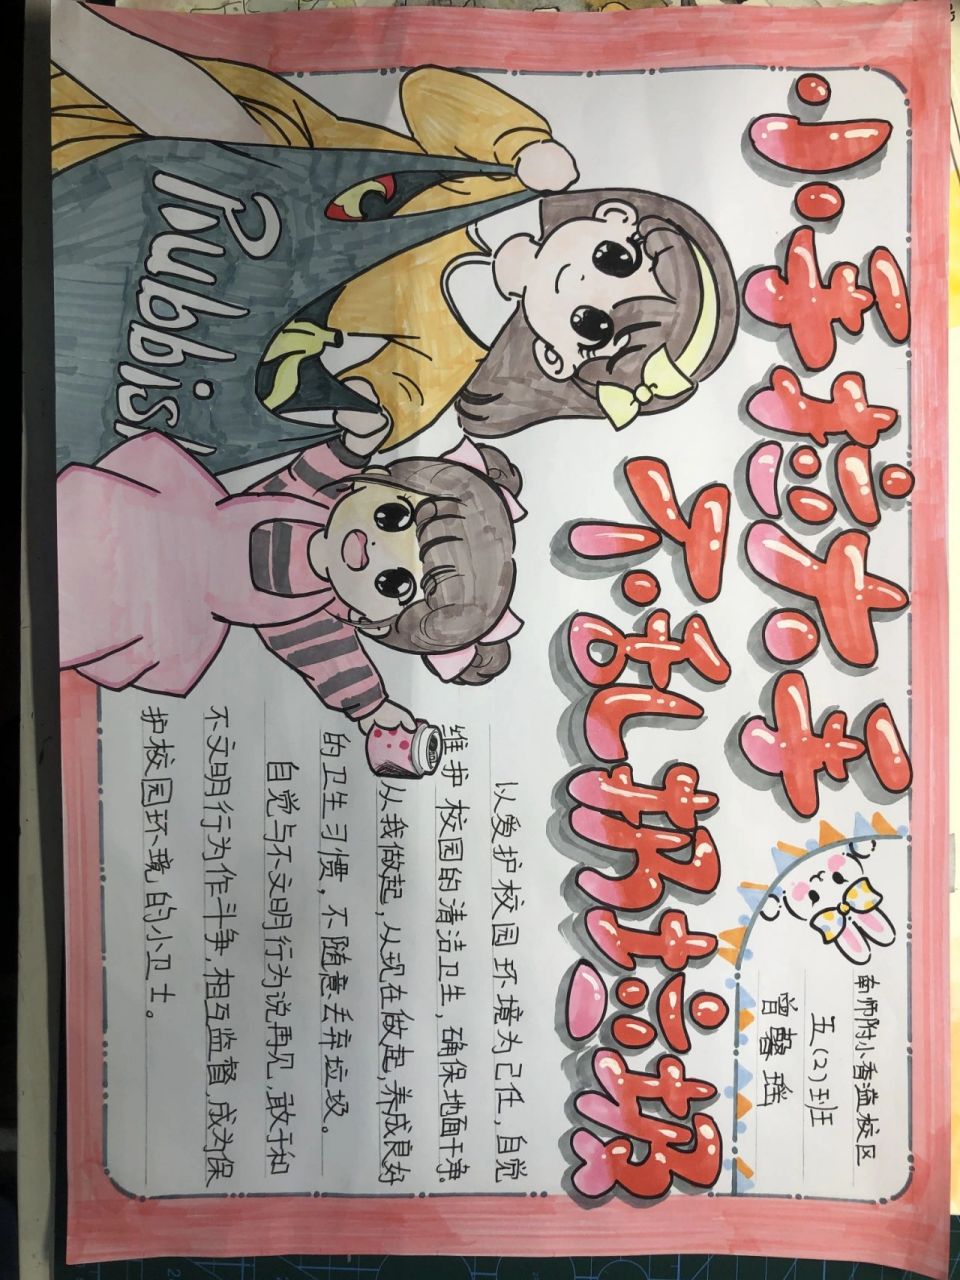 小手拉大手
不乱扔垃圾
南师附小香溢校区
五(2)班
曾馨瑶
Rubbish
以爱护校园环境为己任,自觉
维护校园的清洁卫生,确保地面干净.
从我做起,从现在做起,养成良好
的卫生习惯,不随意丢弃垃圾。
自觉与不文明行为说再见,敢于和
不文明行为作斗争,相互监督,成为保
护校园环境的小卫士。